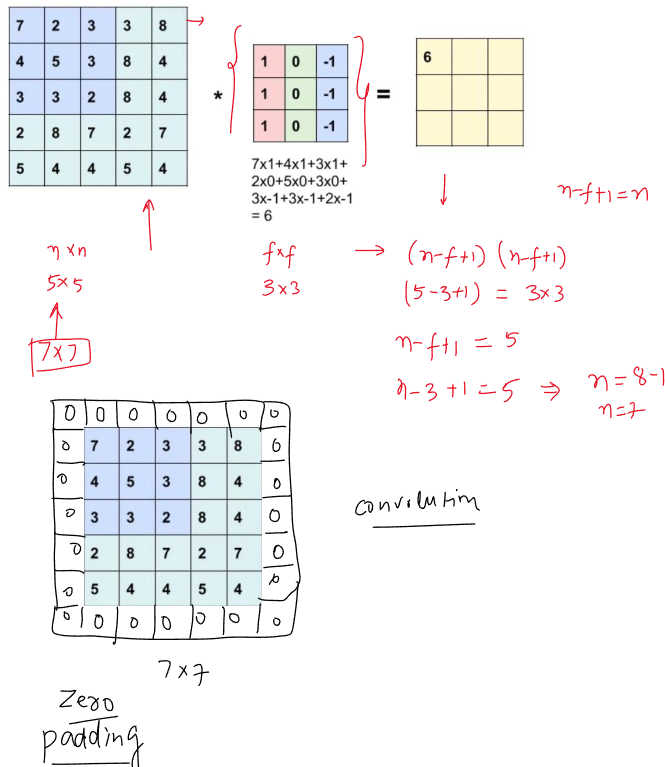 7 2 3 3 8 →
4 5 3 8 4
3 3 2 8 4
2 8 7 2 7
5 4 4 5 4
*
1 0 -1
1 0 -1
1 0 -1
=
6
7x1+4x1+3x1+
2x0+5x0+3x0+
3x-1+3x-1+2x-1
= 6
n-f+1=n
n×n
5×5
7×7
f×f
3×3
→ (n-f+1) (n-f+1)
(5-3+1) = 3×3
n-f+1 = 5
n-3+1=5 ⇒ n=8-1
n=7
0 0 0 0 0 0 0
0 7 2 3 3 8 0
0 4 5 3 8 4 0
0 3 3 2 8 4 0
0 2 8 7 2 7 0
0 5 4 4 5 4 0
0 0 0 0 0 0 0
7×7
convolution
Zero
padding